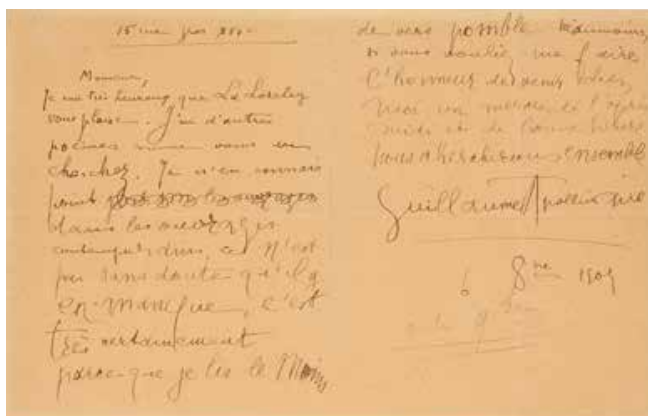 Monsieur,
Je suis très heureux que La Loreley
vous plaise. J'ai d'autres
poèmes comme vous en
cherchez. Je n'en connais
point
dans les ouvrages
contemporains, ce n'est
pas sans doute qu'il y
en manque, c'est
très certainement
parce que je lis le Moins
de vers possible. Néanmoins,
si vous vouliez me faire
l'honneur de venir chez
moi un mercredi l'après
midi et de bonne heure
nous chercherions ensemble
Guillaume Apollinaire
8 1909